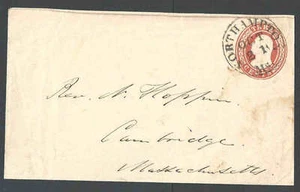 NORTHAMPTON
OCT
Rev. N. Hoppin.
Cambridge.
Massachusetts.